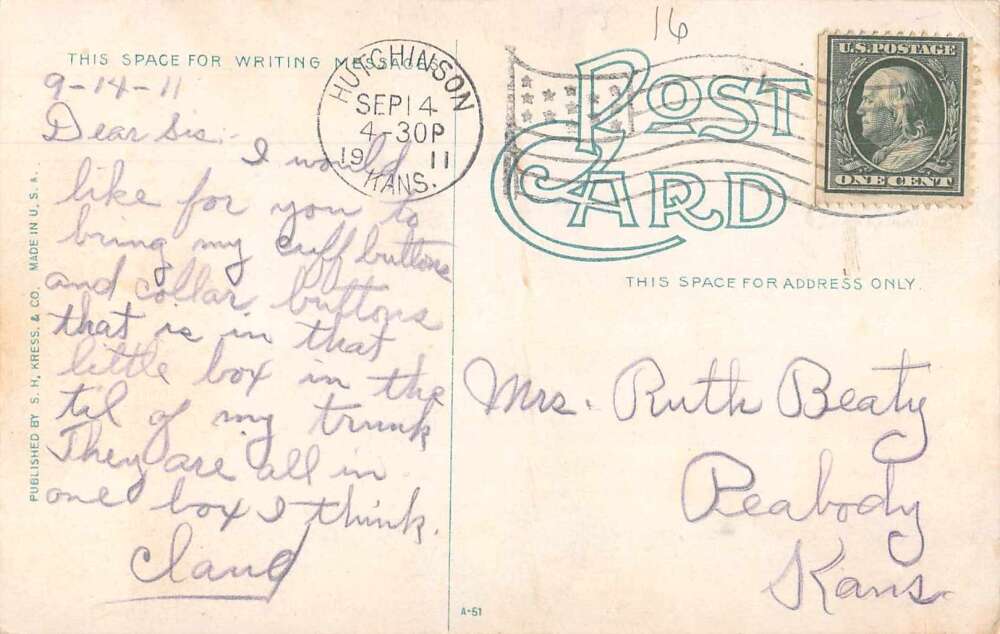 16
THIS SPACE FOR WRITING MESSAGES
9-14-11
Dear Sis. I would
like for you to
bring my cuff buttons
and collar buttons
that is in that
little box in the
til of my trunk
They are all in
one box I think.
PUBLISHED BY S. H. KRESS. & CO. MADE IN U. S. A.
HUTCHINSON
SEP 14
4-30P
19 11
KANS.
POST
CARD
U.S. POSTAGE
ONE CENT
THIS SPACE FOR ADDRESS ONLY.
Mrs. Ruth Beaty
Peabody
Kans.
A-51